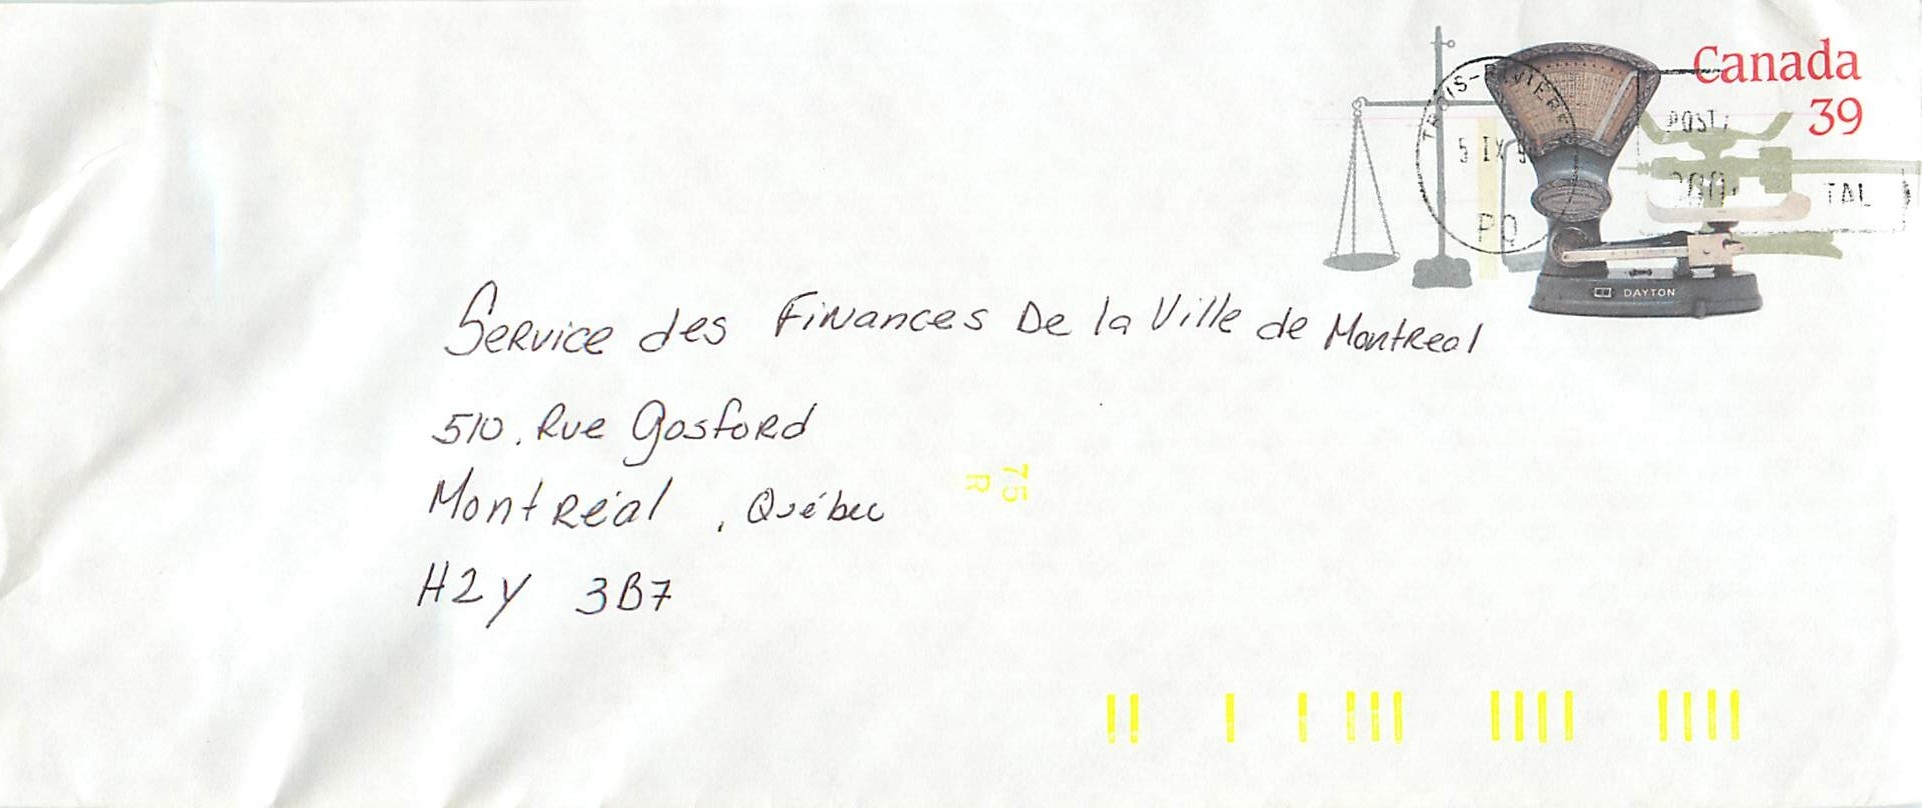 Canada
39
TROIS-RIVIERE
5 IX 9
PQ
POST
TAL
DAYTON
Service des Finances De la Ville de Montreal
510, Rue Gosford
Montréal, Québec
H2Y 3B7
75
R